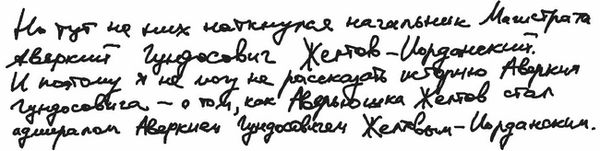 Но тут на них наткнулся начальник Магистрата
Аверкий Гундосович Желтов-Иорданский.
И поэтому я не могу не рассказать историю Аверкия
Гундосовича – о том, как Аверьюшка Желтов стал
адмиралом Аверкием Гундосовичем Желтовым-Иорданским.